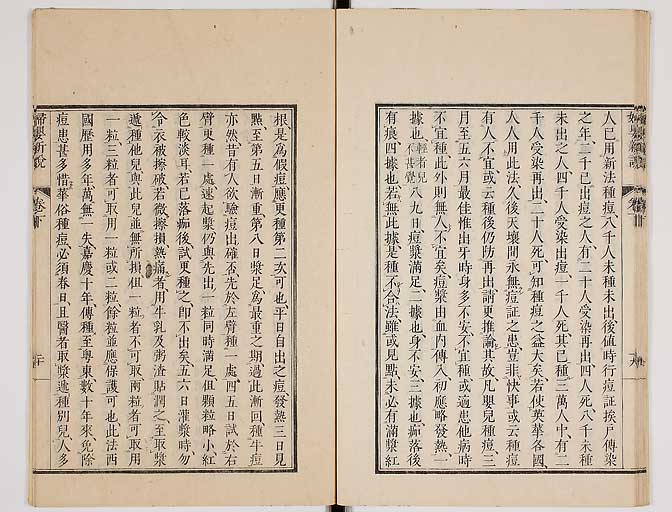 人已用新法種痘八千人未種未出後値時行痘証挨戶傳染
之年三千已出痘之人有二十人受染再出四人死八千未種
未出之人四千人受染出痘一千人死其已種三萬人中有二
千人受染再出二十人死可知種痘之益大矣若使英華各國
人人用此法久後天壤間永無痘証之患豈非快事或云種痘
有人不宜或云種後仍防再出請更推論其故凡嬰兒種痘三
月至五六月最佳惟出牙時身多不安不宜種或適患他病時
不宜種此外則無人不宜矣痘漿由血內傳入初應略發熱一
據也輕者兒不甚覺八九日痘漿滿足二據也身不安三據也痂落後
有痕四據也若無此據是種不合法雖或見點未必有滿漿紅
根是爲假痘應更種第二次可也平日自出之痘發熱三日見
點至第五日漸重第八日漿足爲最重之期過此漸回種牛痘
亦然昔有人欲驗痘出確否先於左臂種一處四五日試於右
臂更種一處速起漿仍與先出一粒同時滿足但顆粒略小紅
色較淡耳若已落痂後試更種之卽不出矣五六日灌漿時勿
令衣被擦破若微擦損熱痛者用牛乳及粥渣貼潤之至取漿
遞種他兒與此兒並無所損但一粒者不可取兩粒者可取用
一粒三粒者可取用一粒或二粒餘粒並應保護可也此法西
國歷用多年萬無一失嘉慶十年傳種至粵東數十年來免除
痘患甚多惜華俗種痘必須春日且醫者取漿遞種別兒人多
婦嬰新說
卷下
二十